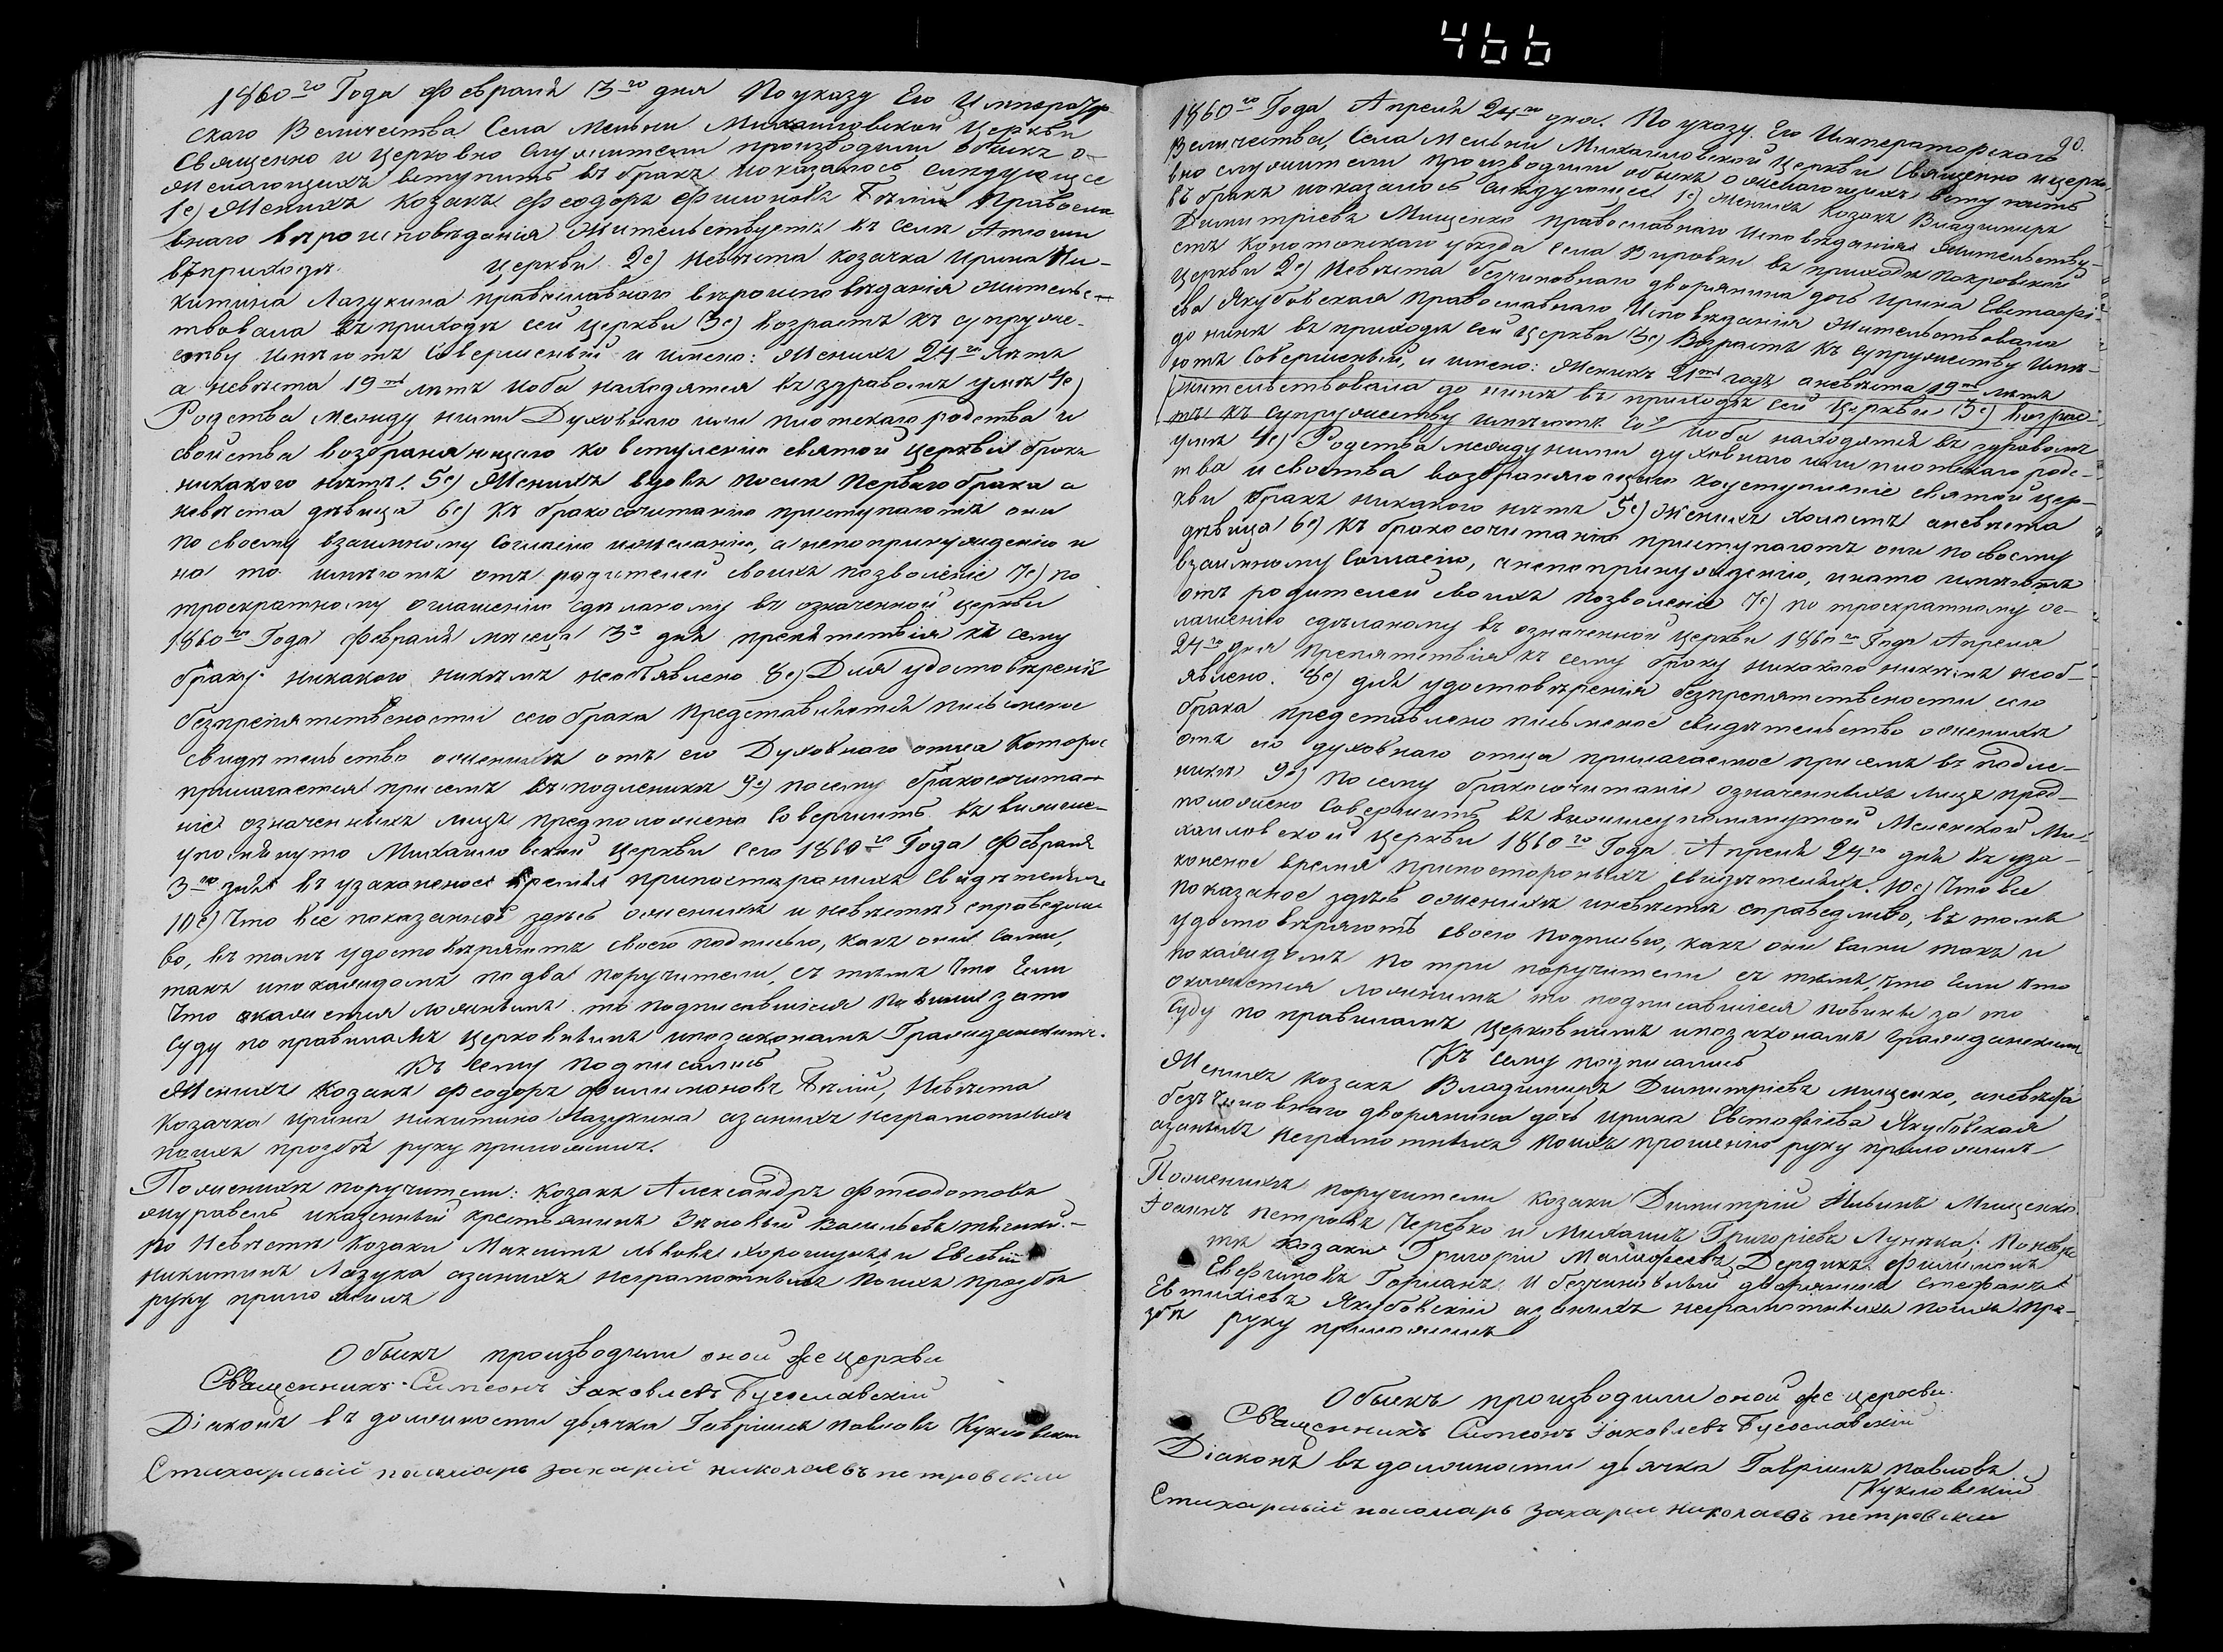 466
1860го Года Февраля 3го дня По указу Его Император
скаго Величества Села Мельни Михаиловской Церкви
Священно и церковно служители производили обыскъ о
желающихъ вступить въ бракъ показалось слѣдующее
1е) Женихъ козакъ Феодоръ Филимоновъ Бѣлій Правосла
внаго вѣроисповѣданія жительствуетъ въ селѣ
въ приходѣ церкви. 2е) Невѣста козачка Ирина Ни-
китина Лазукина православнаго вѣроисповѣданія жительс-
твовала въ приходѣ сей церкви 3е) возрастъ къ супруже-
ству имѣютъ совершенный и имено: Женихъ 24ro лѣтъ
а невѣста 19ти лѣтъ иоба находятся въ здравомъ умѣ 4е)
Родства между ними Духовнаго или плотскаго родства и
свойства возбраняющаго ко вступленію святой церквы брака
никакого нѣтъ. 5е) Женихъ вдовъ послѣ Перваго брака а
невѣста дѣвица 6е) Къ бракосочитанію приступаютъ они
по своему взаимному согласію ижеланію, а непопринужденію и
на то имѣютъ отъ радителей своихъ позволеніе 7е) по
троекратному оглашенію сдѣланому въ означенной церкви
1860го Года Февраля мѣсяца 3го дня препятствія къ сему
браку никакого никѣмъ необъявлено 8е) Для удостовѣренія
безпрепятственности сего брака Представляется письменое
свидѣтельство оженихѣ отъ его Духовнаго отца Которое
прилагается присемъ въ подленикѣ 9е) посему бракосочита-
ніе означенныхъ лицъ предположено совершить въ вышеу-
упомянуто Михаиловской церкви сего 1860го Года Февраля
3го дня въ узаконеное время припостараннихъ свидѣтеляхъ
10е) Что все показанное здѣсь оженихѣ и невѣстѣ справедли
во, въ томъ удостовѣряютъ своею подписью, какъ они сами,
такъ ипокаждомъ подва поручители, съ тѣмъ что Если
Что окажется ложнымъ то подписавшіися повинни зато
Суду по правиламъ церковнымъ ипозаконамъ Гражданскимъ.
Къ сему подписались
Женихъ Козакъ Феодоръ Филимоновъ Бѣлій, Невѣста
Козачка Ирина Никитина Лазукина азанихъ неграмотныхъ
поихъ прозбѣ руку приложилъ.
Поженихѣ поручители: козакъ Александръ Феодотовъ
журавель иказенный крестьянинъ Зѣновый Васильевъ
по Невѣстѣ Козаки Максимъ Львовъ Хорошунъ, и Евсѣвій
Никитинъ Лазука азанихъ неграмотныхъ поихъ прозбѣ
руку приложилъ
Обыскъ производили оной же церкви
Священникъ Симеонъ Іаковлевъ Бугославскій
Діаконъ въ должности дьячка Гавріилъ Павловъ Кукловскій
Стихарный пономарь Захарій Николаевъ Петровскій
90.
1860го Года Апреля 24го дня. По указу Его Императорскаго
Величества, Села Мельни Михаиловской Церкви Священно ицерко
вно служители производили обыскъ ожелающихъ вступить
въ бракъ показалось слѣдующее 1е) Женихъ Козакъ Владимиръ
Димитріевъ Мищенко православнаго исповѣданія жительству-
етъ Конотопскаго уѣзда села Вировки въ приходѣ Покровской
церкви 2е) Невѣста безчиновнаго дворянина дочь Ирина Евстафі-
ева Якубовская православнаго Исповѣданія жительствовала
до нынѣ въ приходѣ сей церкви 3е) Возрастъ къ супружеству Имѣ-
ютъ совершеный, и имено: Женихъ 21го годъ аневѣста 19ти лѣтъ
жительствовала до нынѣ въ приходѣ сей церкви 3е) возрас-
тъ къ супружеству имѣютъ со иоба находятся въ здравомъ
умѣ 4е) Родства между ними духовнаго или плотскаго родс-
тва и своества возбраняющаго коуступленіе святой цер-
кви бракъ никакого нѣтъ 5е) Женихъ холостъ аневѣста
дѣвица 6е) Къ бракосочитанію приступаютъ они посвоему
взаимному согласію, анепопринужденію, инато имѣютъ
отъ родителей своихъ позволеніе 7е) по троекратному ог-
лашенію сдѣланому въ означеной церкви 1860го Года Апреля
24го дня препятствія къ сему браку никакого никѣмъ необ-
явлено. 8е) для удостовѣренія безпрепятствености сего
брака представлено письменое свидѣтельство оженихѣ
отъ его духовнаго отца прилагаемое присемъ въ подле-
никѣ 9е) посему бракосочитаніе означенныхъ лицъ пред-
положено совершить въ вышеупомянутой Меленской Ми-
хаиловской церкви 1860го Года Апреля 24го дня въ уза-
коненое время припостороныхъ свидѣтеляхъ. 10е) Что все
показаное здѣсь оженихѣ иневѣстѣ справедливо, въ томъ
удостовѣряютъ своею подписью, какъ они сами такъ и
покаждомъ по три поручители съ тѣмъ, что Если что
окажется ложнимъ то подписавшіеся повинны за то
суду по правиламъ церковнимъ ипозаконамъ гражданскимъ
Къ сему подписались
Женихъ козакъ Владимиръ Димитріевъ Мищенко, аневѣста
безъчиновнаго дворянина дочь Ирина Евстафіева Якубовская
азанихъ неграмотныхъ поихъ прошенію руку приложилъ
Поженихѣ поручители козаки Димитрій Мищенко
Іоаннъ Петровъ Черевко и Михаилъ Григоріевъ Луняка; Поневѣс
тѣ козаки Григорій Дердикъ Филимонъ
Евфимовъ Горланъ и безчиновный дворянинъ Стефанъ
Евтихіевъ Якубовскій азанихъ неграмотныхъ поихъ про-
збѣ руку приложилъ
Обыскъ производили оной же церкви.
Священникъ Симеонъ Іаковлевъ Бугославскій
Діаконъ въ должности дьячка Гавріилъ Павловъ
Кукловскій
Стихарный пономарь Захарій Николаевъ Петровскій